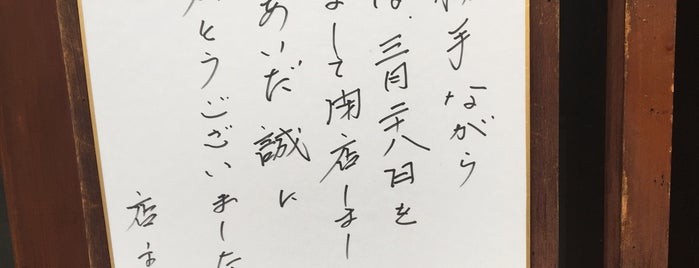 手ながら
三月二十八日を
まして閉店しまし
あいだ誠に
とうございました
店主